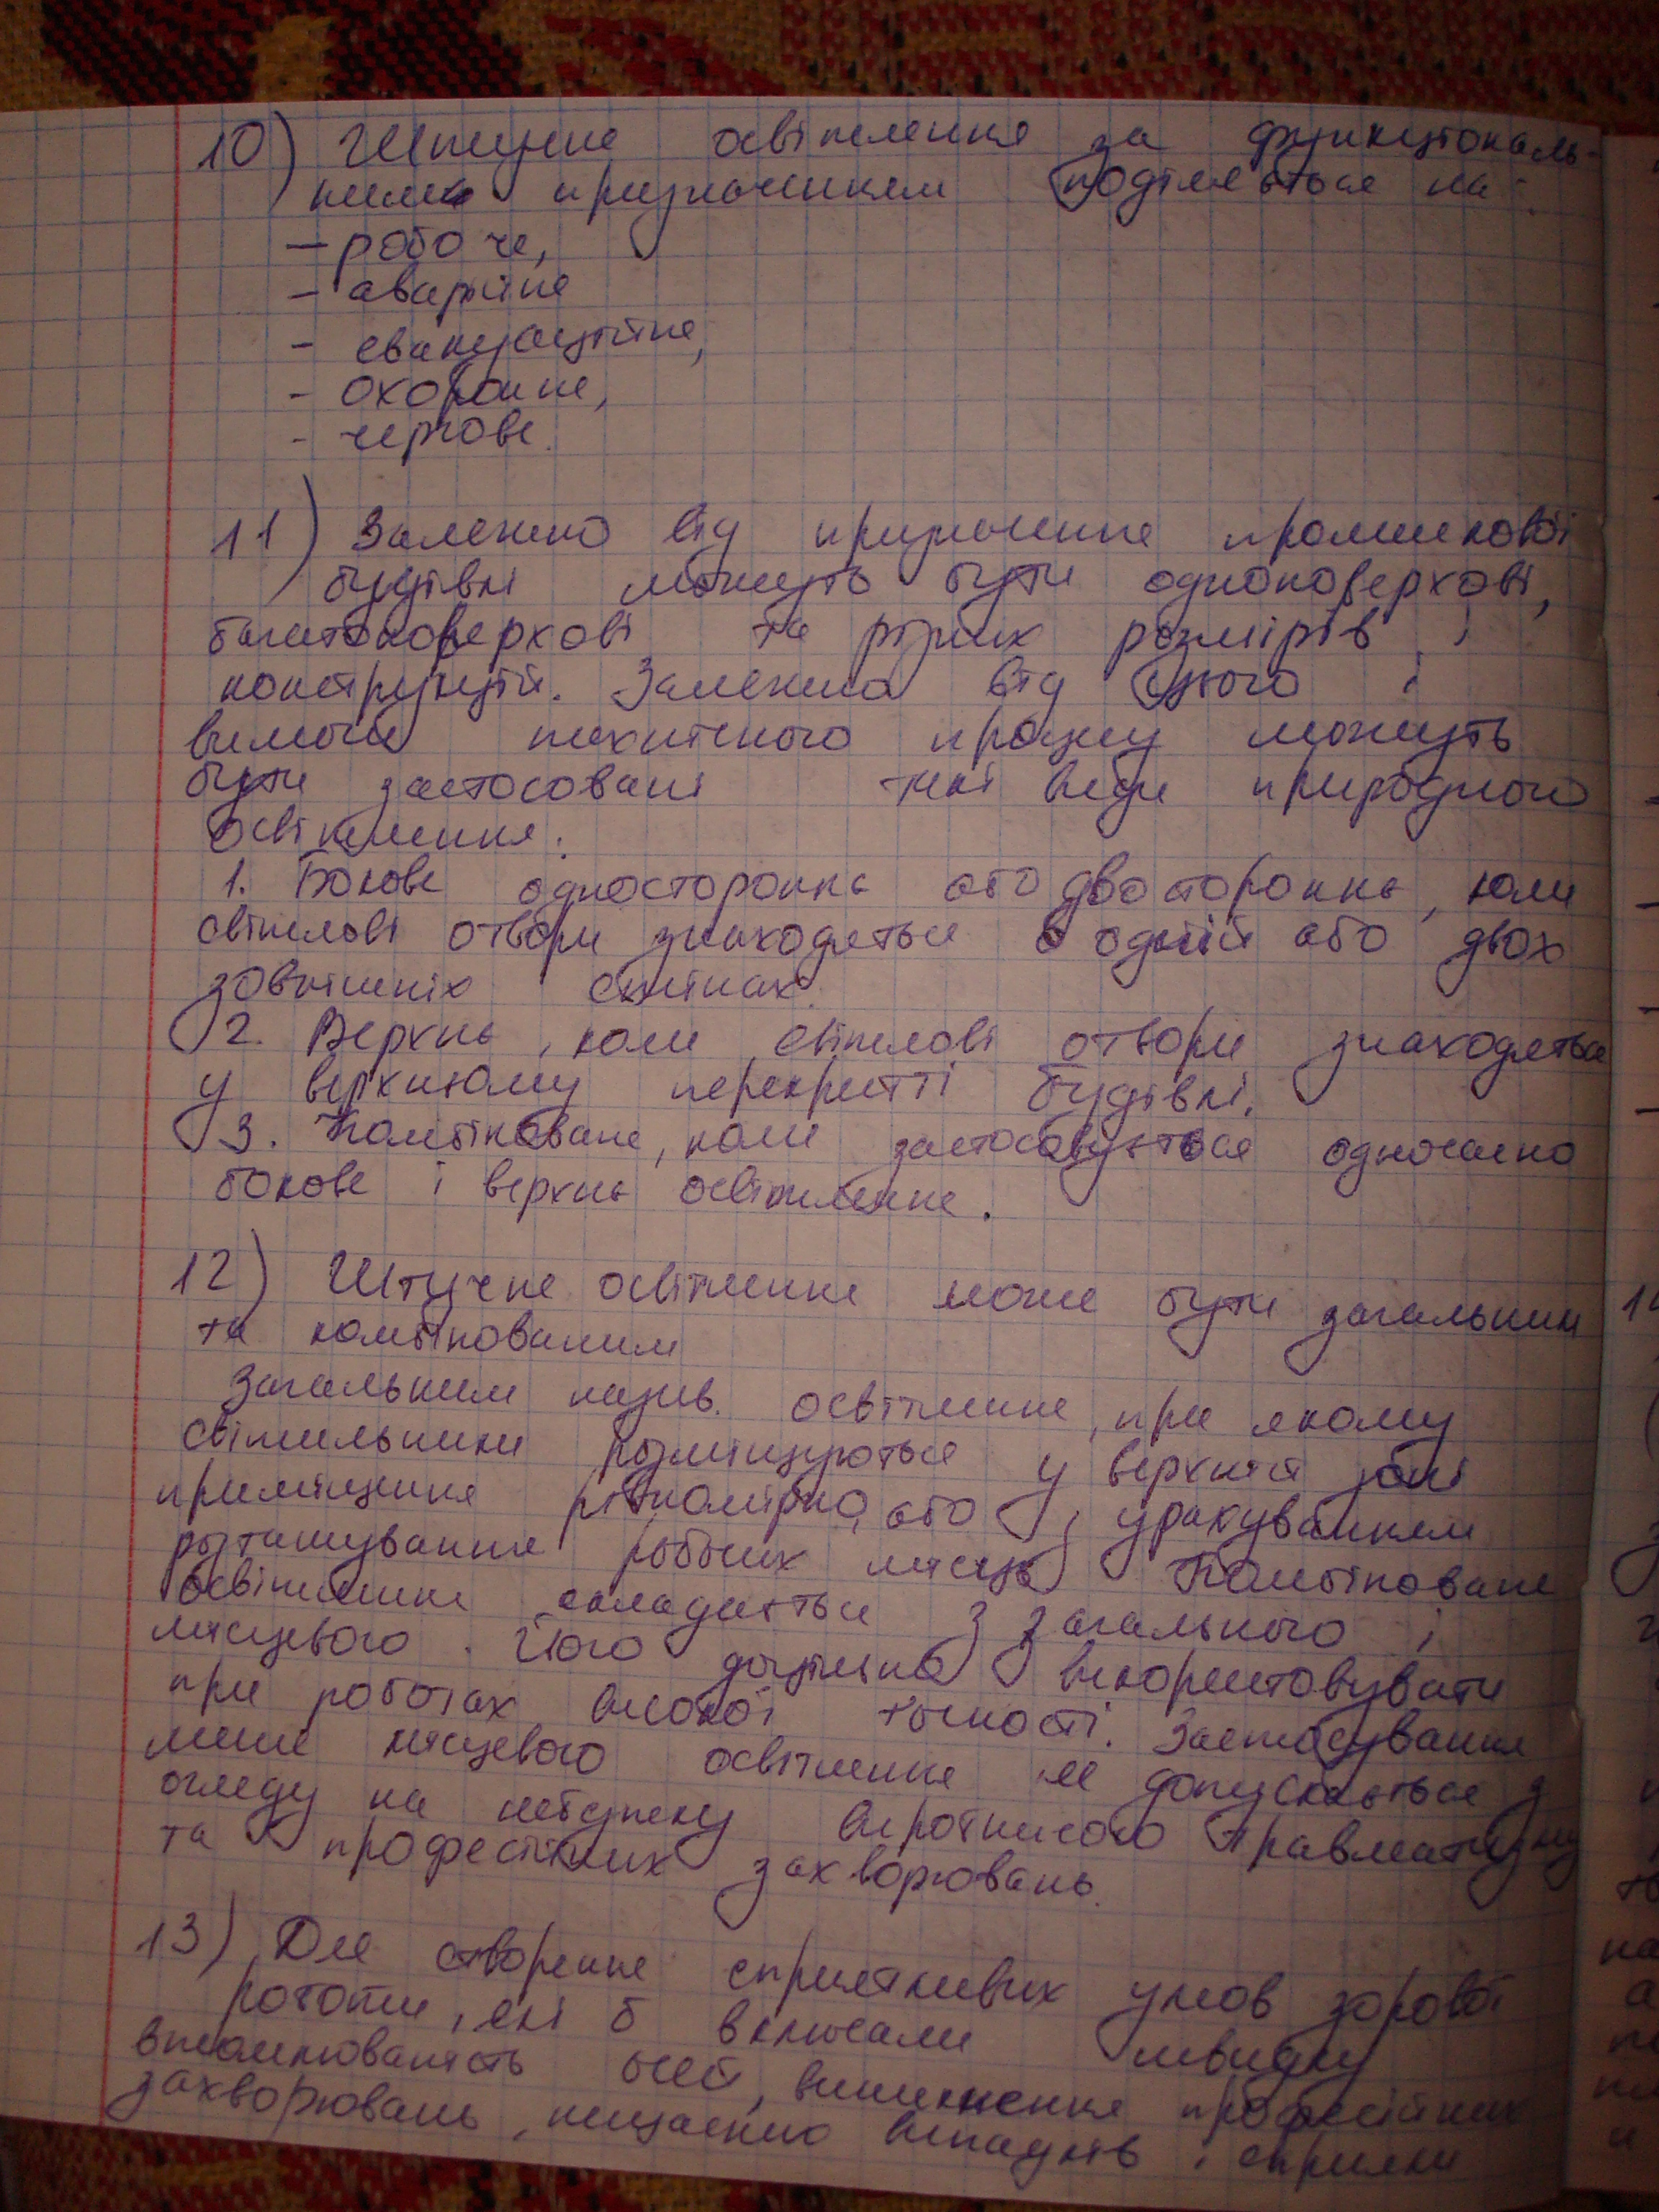 10) Штучне освітлення за функціональ-
ними призначенням поділяється на:
— робоче,
- аварійне
- евакуаційне,
- охоронне,
- чергове.
11) Залежно від призначення промислової
будівлі можуть бути одноповерхові,
багатоповерхові та різних розмірів і
конструкцій. Залежно від цього і
вимоги технічного процесу можуть
бути застосовані такі види природного
освітлення:
1. Бокове одностороннє або двостороннє, коли
світлові отвори знаходяться в одній або двох
зовнішніх стінах.
2. Верхнє, коли світлові отвори знаходяться
у верхньому перекритті будівлі.
3. Комбіноване, коли застосовується одночасно
бокове і верхнє освітлення.
12) Штучне освітлення може бути загальним
та комбінованим
Загальним назив. освітлення, при якому
світильники розміщуються у верхній зоні
приміщення рівномірно, або з урахуванням
розташування робочих місць. Комбіноване
освітлення складається з загального і
місцевого. Його доцільно використовувати
при роботах високої точності. Застосування
лише місцевого освітлення не допускається з
огляду на небезпеку виробничого травматизму
та професійних захворювань.
13) Для створення сприятливих умов зорової
роботи, які б включали швидку
втомлюваність очей, виникнення професійних
захворювань, нещасних випадків і сприяли